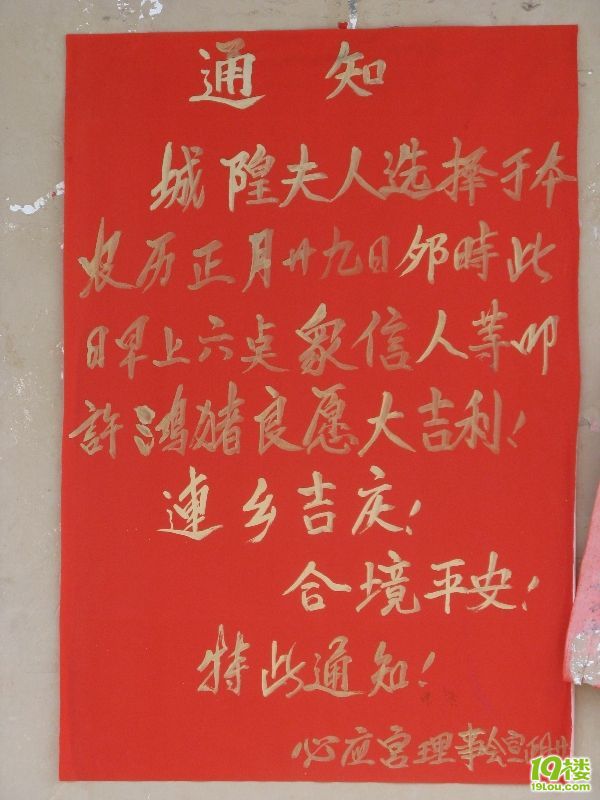 通知
城隍夫人选择于本
农历正月廿九日卯時此
日早上六点众信人等叩
許鸿猪良愿大吉利!
連乡吉庆!
合境平安!
特此通知!
心应宫理事会宣 正月廿
19楼
19lou.com